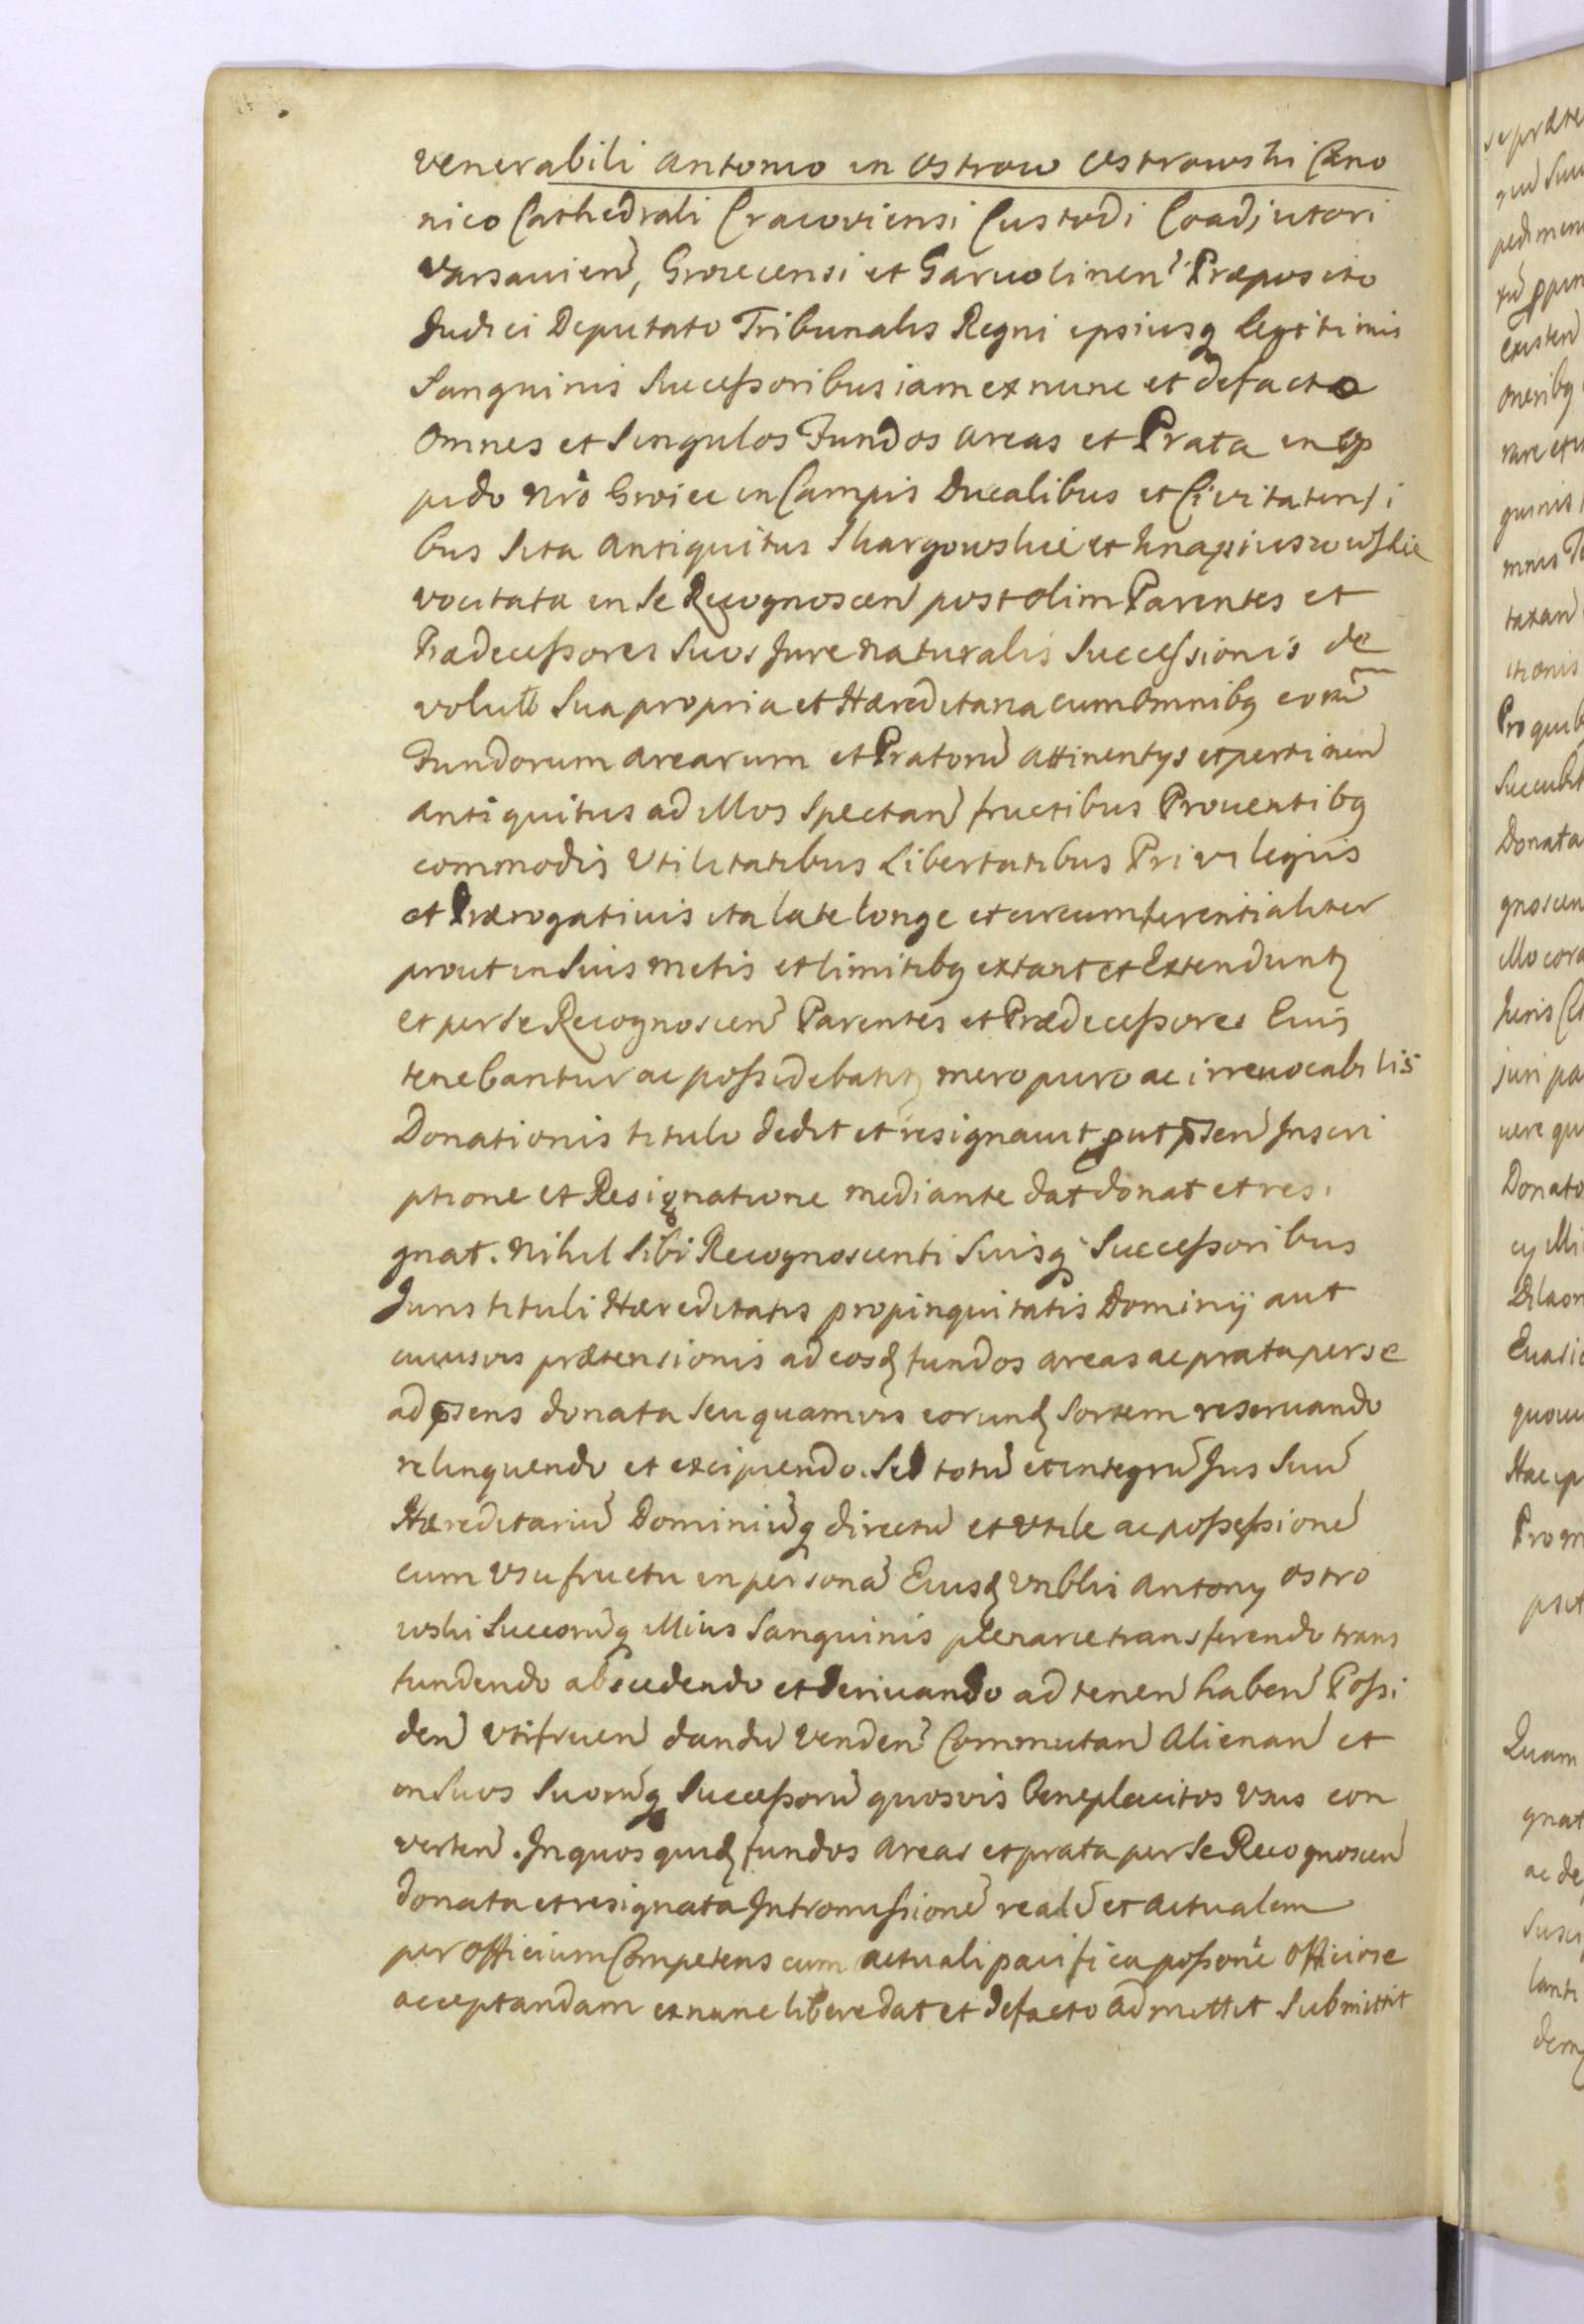 venerabili Antonio in Ostrow Ostrowski Cano
nico Cathedrali Cracoviensi Custodi Coadjutori
Varsavien̄, Groiecensi et Garwolinen̄ Præposito
Judici Deputato Tribunalis Regni ipsiusq legitimis
Sanguinis Succeſsoribus iam ex nunc et de facto
Omnes et Singulos Fundos Areas et Prata in Op
pido Nro Groiec in Campis Ducalibus et Civitatensi
bus Sita Antiquitus Skargowskie et Knapiuszowskie
vocitata in Se Recognoscen̄ post olim Parentes et
Prædeceſsores Suos Jure Naturalis Succeſsionis de
voluta Sua propria et Hæreditaria cum Omnibq eorū
Fundorum Arearum et Pratorū Attinentys et pertinen̄
Antiquitus ad illos Spectan̄ fructibus Proventibq
commodis Utilitatibus Libertatibus Privilegiis
et Prærogativis ita late longe et circumferentialiter
prout in Suis metis et limitibq extant et Extendunt
et per Se Recognoscen̄ Parentes et Prædeceſsores Eius
tenebantur ac poſsidebantr mero puro ac irrevocabilis
Donationis titulo dedit et resignavit put p̄sen̄ Inscri
ptione et Resignatione mediante dat donat et resi
gnat. Nihil Sibi Recognoscenti Suisq Succeſsoribus
Juris tituli Hæreditatis propinquitatis Dominÿ aut
cuiusvis prætensionis ad eosd fundos areas ac prata per se
ad p̄sens donata Seu quamvis eorund Sortem reservando
relinquendo et excipiendo. Sed totū et integrū Jus Suū
Hæreditariū Dominiūq directū et Utile ac poſseſsionē
cum Usufructu in personā Eiusd Vnblis Antony Ostro
wski Succorūq illius Sanguinis plenarie transferendo trans
fundendo abscedendo et derivando ad tenen̄ haben̄ Poſsi
den̄ Utifruen̄ dandū Venden̄ Commutan̄ Alienan̄ et
in Suos Suorūq Succeſsorū quosvis Beneplacitos Usus con
verten̄. In quos quid fundos Areas et prata per Se Recognoscen̄
donata et resignata Intromiſsionē realē et Actualem
per Officium Competens cum actuali pacifica poſsone Officiose
acceptandam ex nunc libere dat et de facto Admittit Submittit